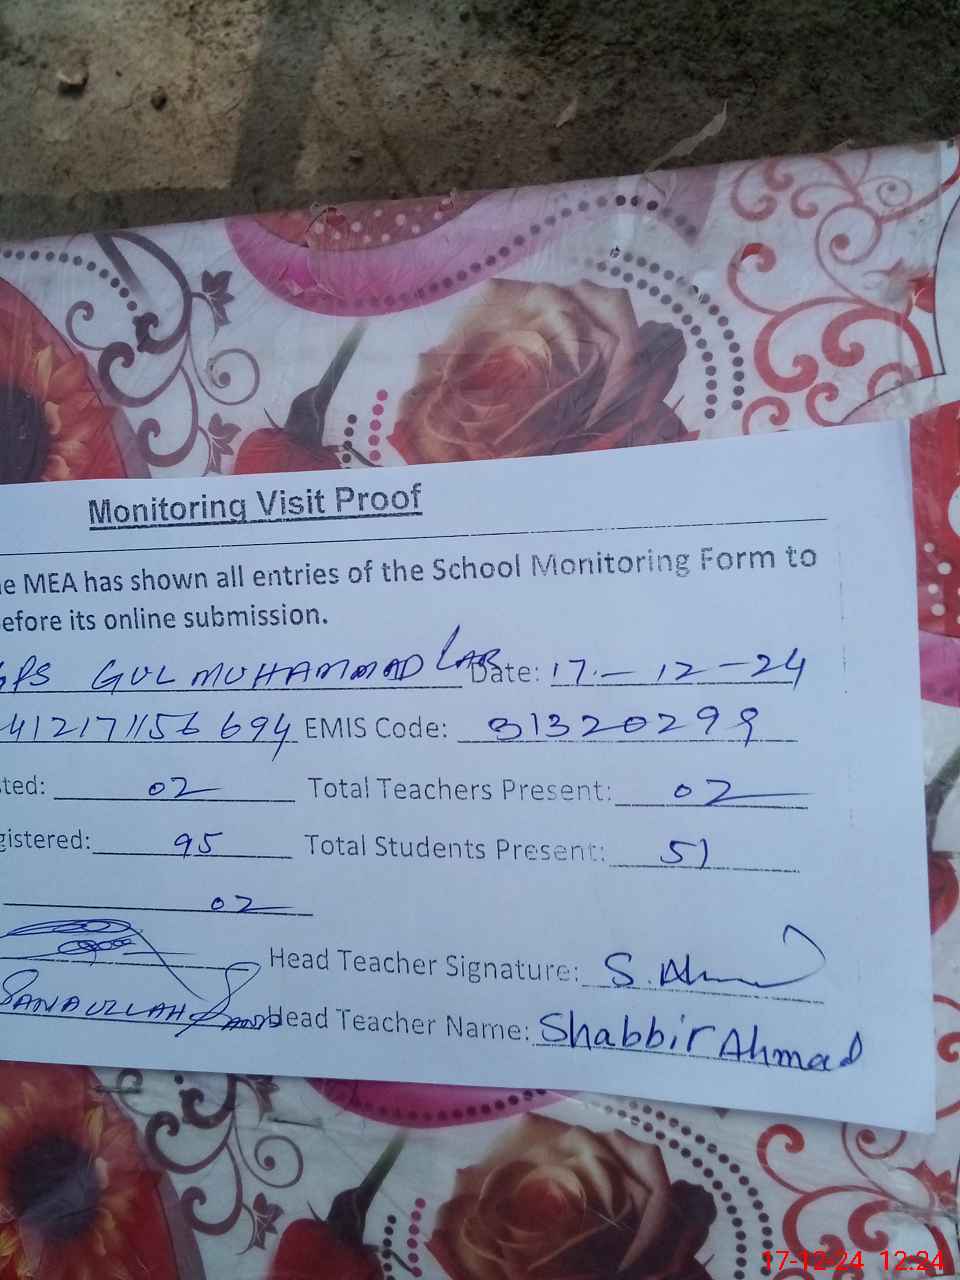 Monitoring Visit Proof
he MEA has shown all entries of the School Monitoring Form to
efore its online submission.
GPS GUL MUHAMMAD LAR Date: 17-12-24
41217156694 EMIS Code: 31320299
ted: 02 Total Teachers Present: 02
gistered: 95 Total Students Present: 51
02
Head Teacher Signature: S. Ahmad
SANAULLAH Head Teacher Name: Shabbir Ahmad
17-12-24 12:24